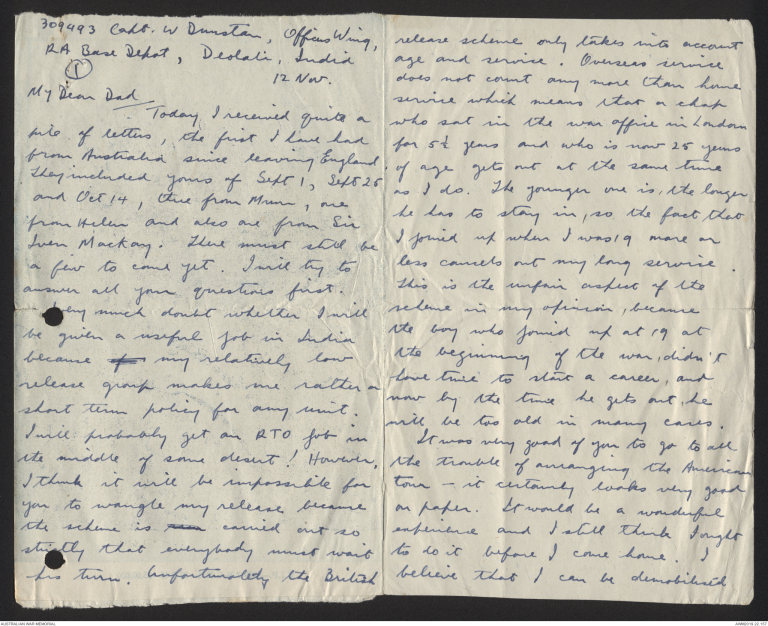 309493 Capt. W Dunstan, Officers Wing,
RA Base Depot, Deolali, India
1
12 Nov.
My Dear Dad
Today I received quite a
pile of letters, the first I have had
from Australia since leaving England.
They included yours of Sept 1, Sept 25
and Oct 14, three from Mum, one
from Helen and also one from Sir
Iven Mackay. There must still be
a few to come yet. I will try to
answer all your questions first.
Very much doubt whether I will
be given a useful job in India
because my relatively low
release group makes me rather a
short term policy for any unit.
I will probably get an RTO job in
the middle of some desert! However,
I think it will be impossible for
you to wangle my release because
the scheme is carried out so
strictly that everybody must wait
his turn. Unfortunately the British
release scheme only takes into account
age and service. Overseas service
does not count any more than home
service which means that a chap
who sat in the war office in London
for 5½ years and who is now 25 years
of age gets out at the same time
as I do. The younger one is, the longer
he has to stay in, so the fact that
I joined up when I was 19 more or
less cancels out my long service.
This is the unfair aspect of the
scheme in my opinion, because
the boy who joined up at 19 at
the beginning of the war, didn't
have time to start a career, and
now by the time he gets out, he
will be too old in many cases.
It was very good of you to go to all
the trouble of arranging the American
tour - it certainly looks very good
on paper. It would be a wonderful
experience and I still think I ought
to do it before I come home. I
believe that I can be demobilised
AUSTRALIAN WAR MEMORIAL